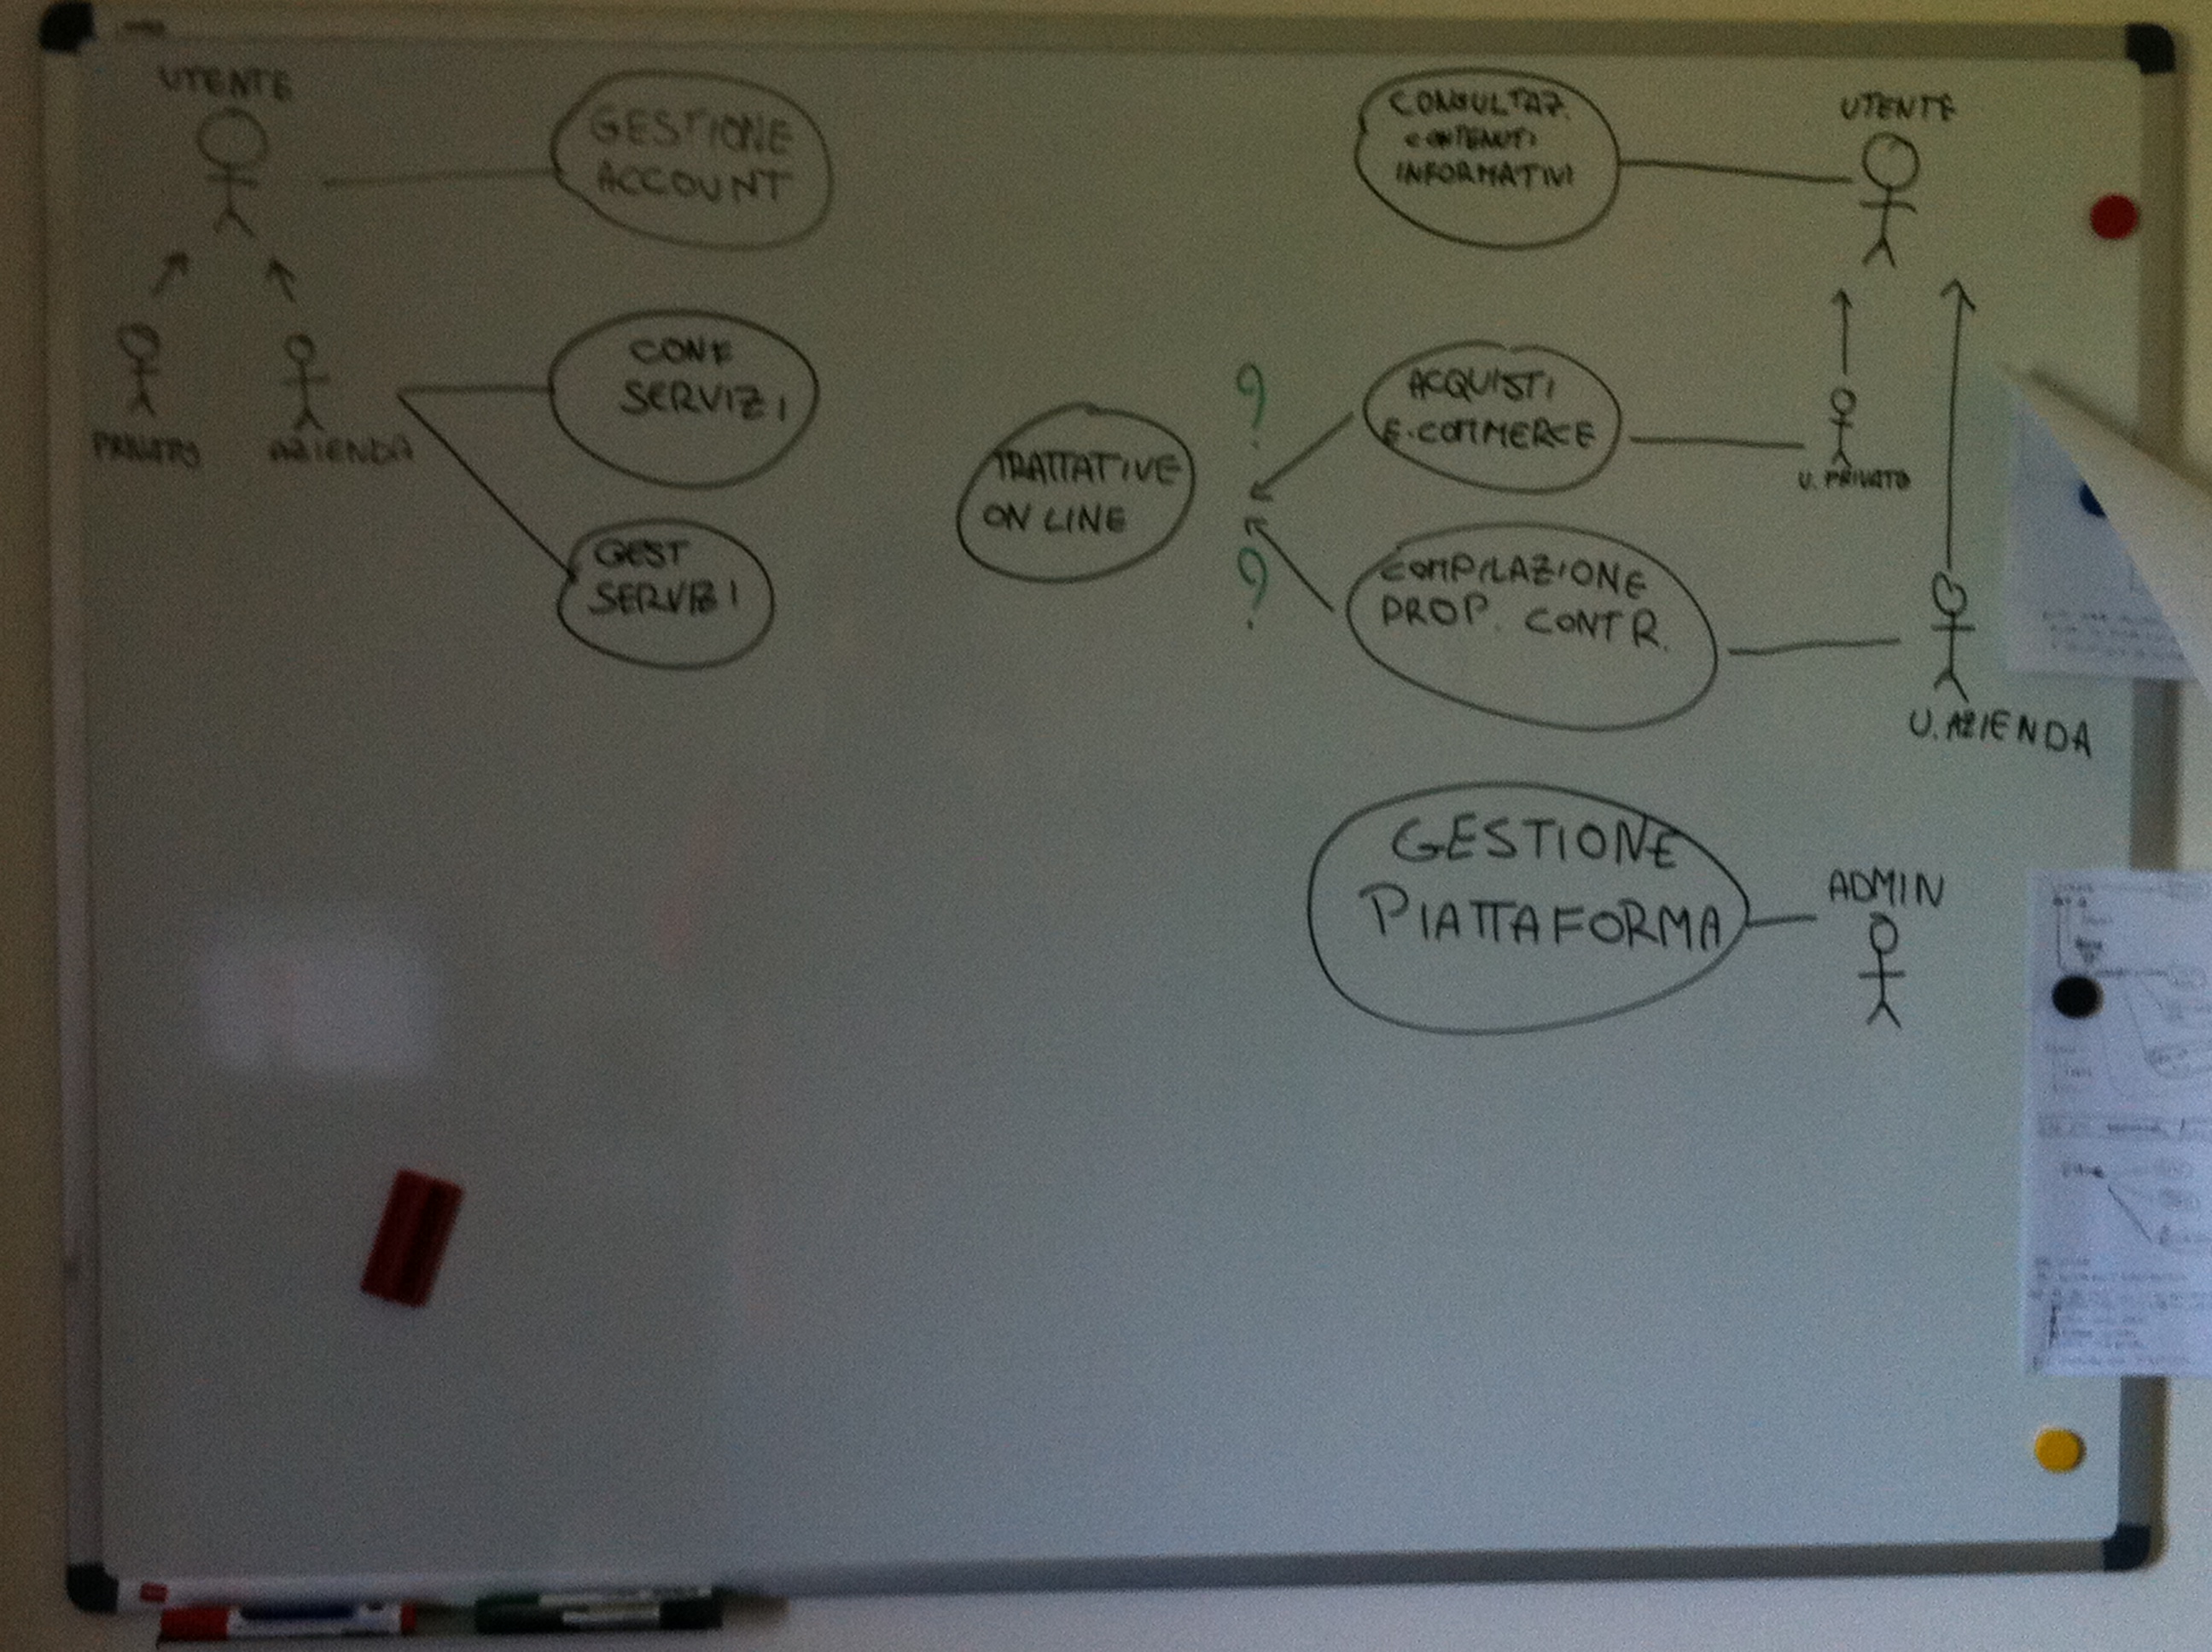 UTENTE
GESTIONE
ACCOUNT
PRIVATO
AZIENDA
CONF
SERVIZI
GEST
SERVIZI
TRATTATIVE
ON LINE
?
?
CONSULTAZ.
CONTENUTI
INFORMATIVI
UTENTE
ACQUISTI
E-COMMERCE
U. PRIVATO
COMPILAZIONE
PROP. CONTR.
U. AZIENDA
GESTIONE
PIATTAFORMA
ADMIN